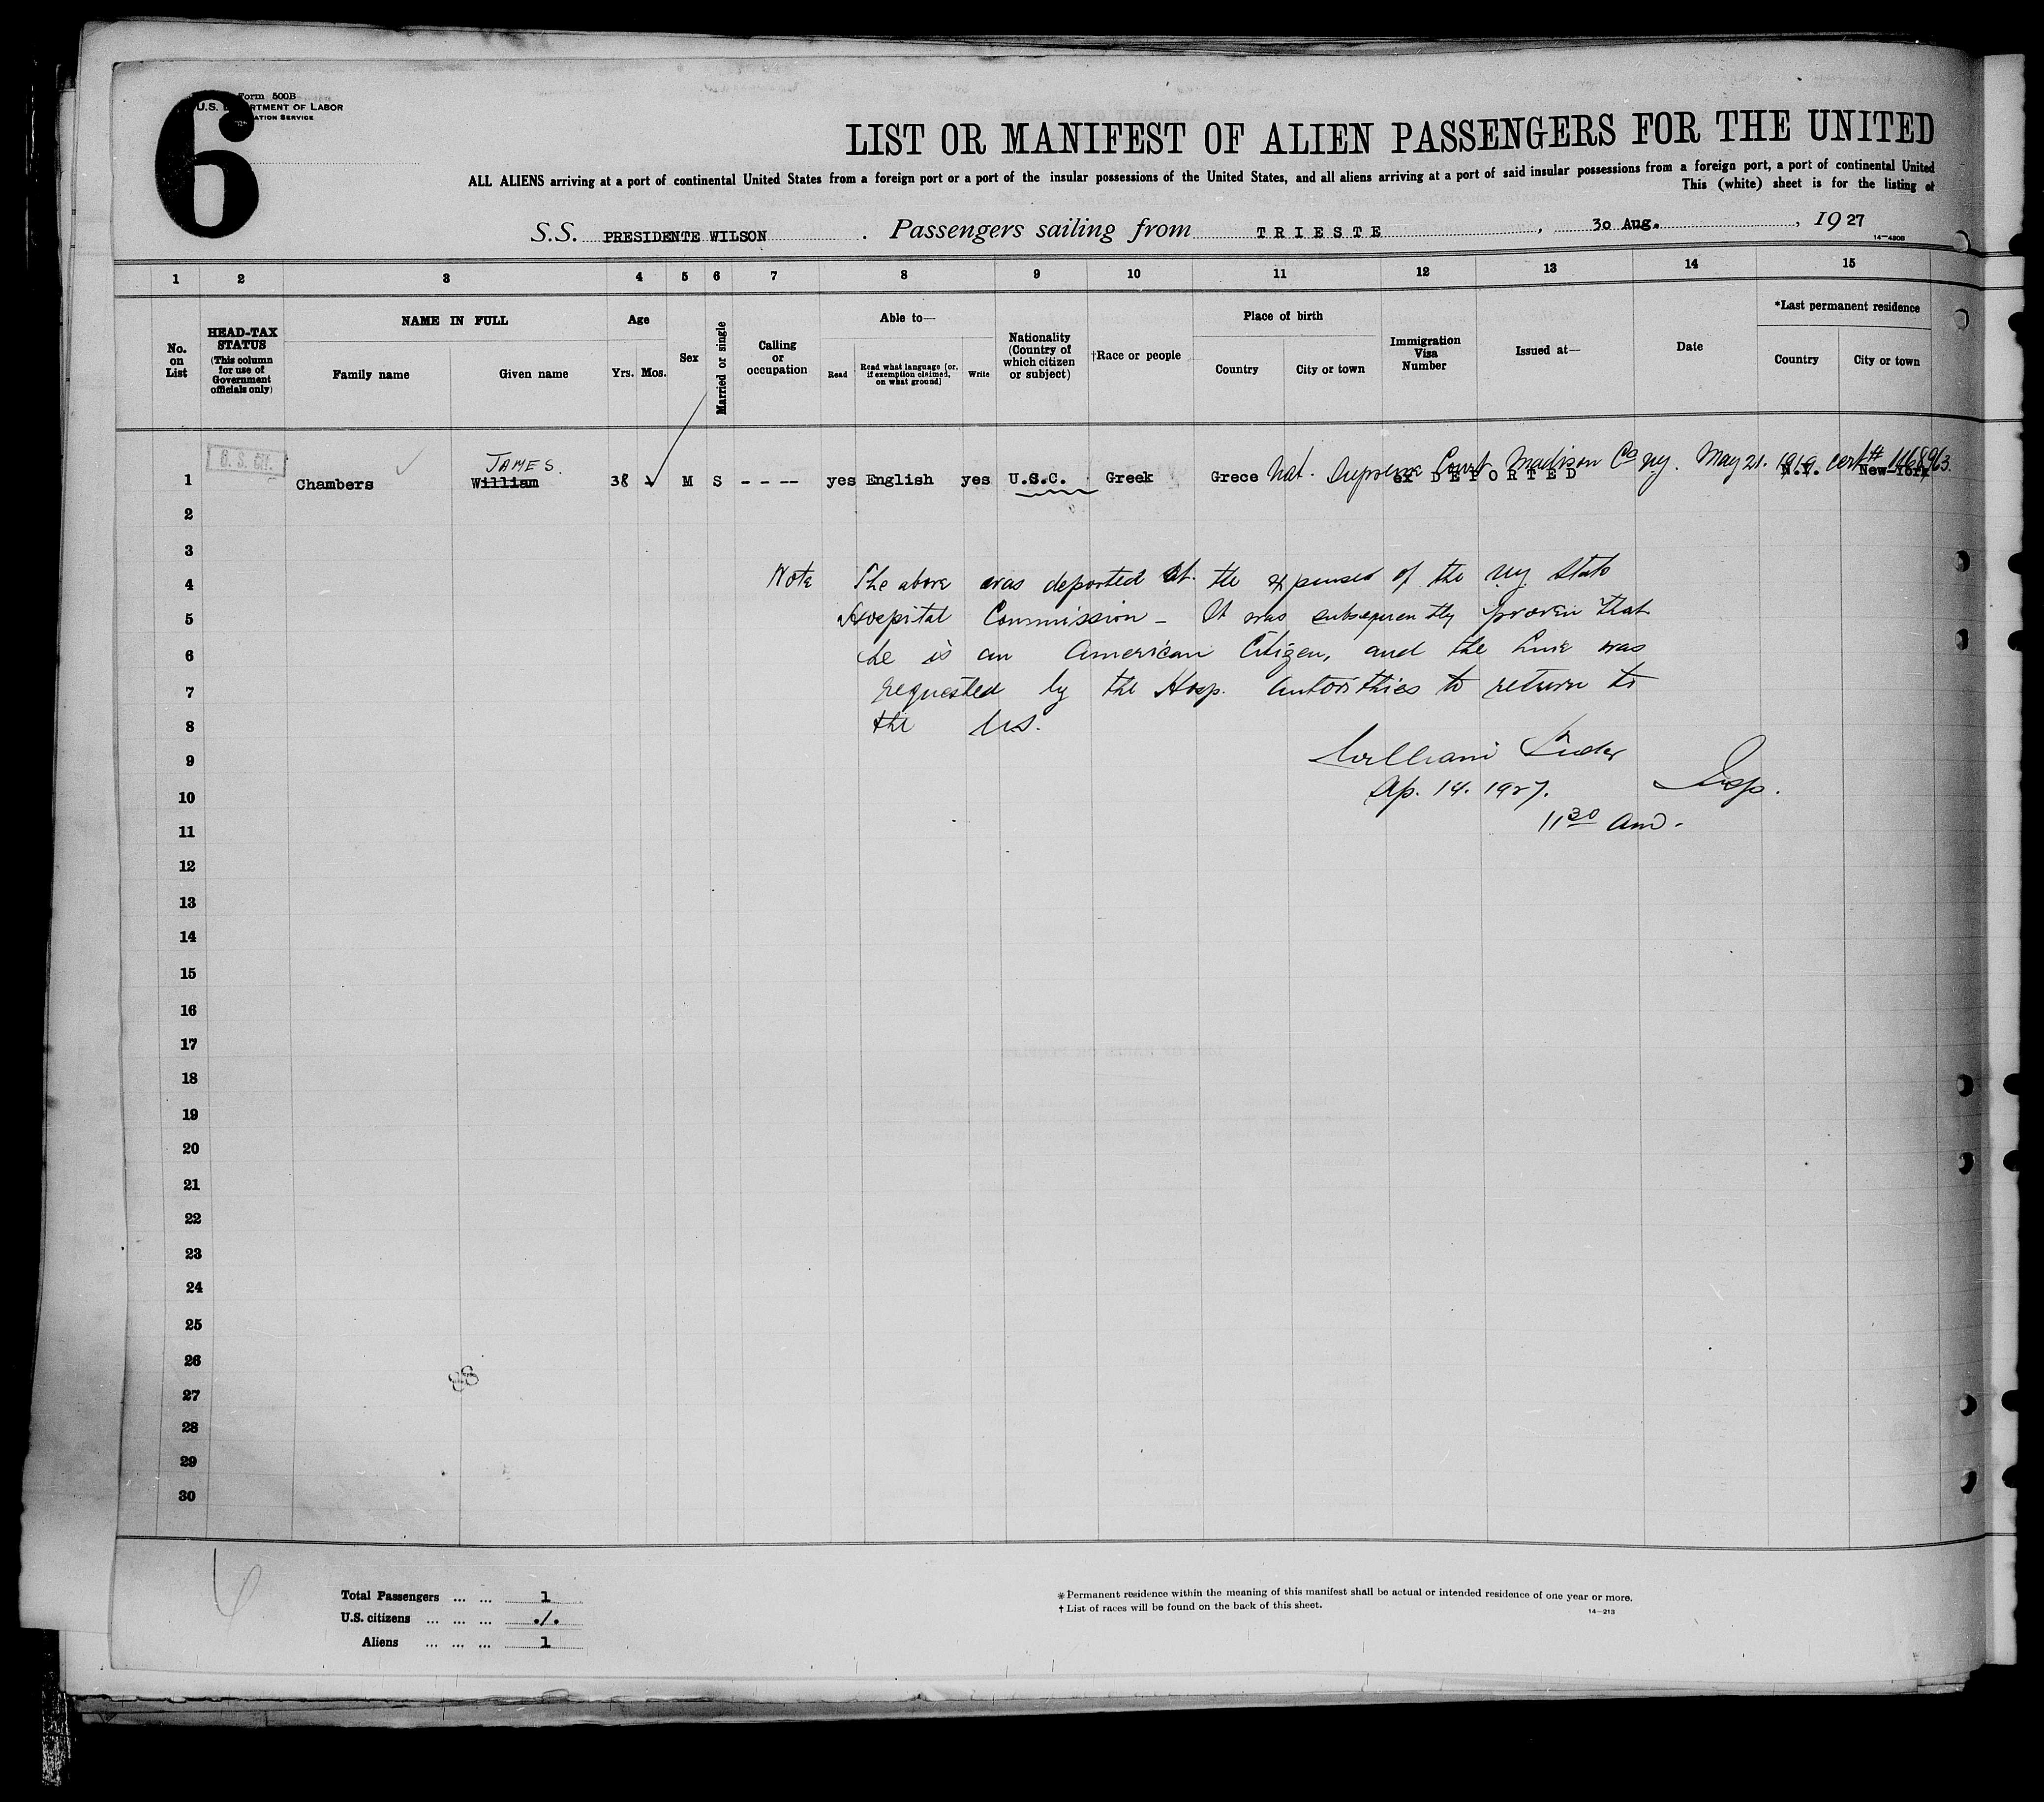 6
Form 500B
U.S. DEPARTMENT OF LABOR
ATION SERVICE
LIST OR MANIFEST OF ALIEN PASSENGERS FOR THE UNITED
ALL ALIENS arriving at a port of continental United States from a foreign port or a port of the insular possessions of the United States, and all aliens arriving at a port of said insular possessions from a foreign port, a port of continental United
This (white) sheet is for the listing of
S.S. PRESIDENTE WILSON. Passengers sailing from TRIESTE, 30 Aug., 19 27
14-430B
1 2 3 4 5 6 7 8 9 10 11 12 13 14 15
No. on List
HEAD-TAX STATUS (This column for use of Government officials only)
NAME IN FULL
Family name Given name
Age
Yrs. Mos.
Sex
Married or single
Calling or occupation
Able to—
Read Read what language [or, if exemption claimed, on what ground] Write
Nationality (Country of which citizen or subject)
†Race or people
Place of birth
Country City or town
Immigration Visa Number
Issued at—
Date
*Last permanent residence
Country City or town
U. S. Cit.
JAMES. Nat. Supreme Court Madison Co NY. May 21. 1919 cert #
1 Chambers William 38 M S - - -- yes English yes U.S.C. Greek Grece ex DEPORTED N.Y. New-York
2
3
4 Note The above was deported at the expenses of the NY State
5 Hospital Commission - It was subsequently proven that
6 he is an American Citizen, and the Line was
7 requested by the Hosp. Autorithies to return to
8 the US.
9 William
10 Sep. 14. 1927. Insp.
11 11 30 Am.
12
13
14
15
16
17
18
19
20
21
22
23
24
25
26
88
27
28
29
30
6
Total Passengers ... ... 1
U.S. citizens ... ... ... ./.
Aliens ... ... ... 1
* Permanent residence within the meaning of this manifest shall be actual or intended residence of one year or more.
† List of races will be found on the back of this sheet.
14-213